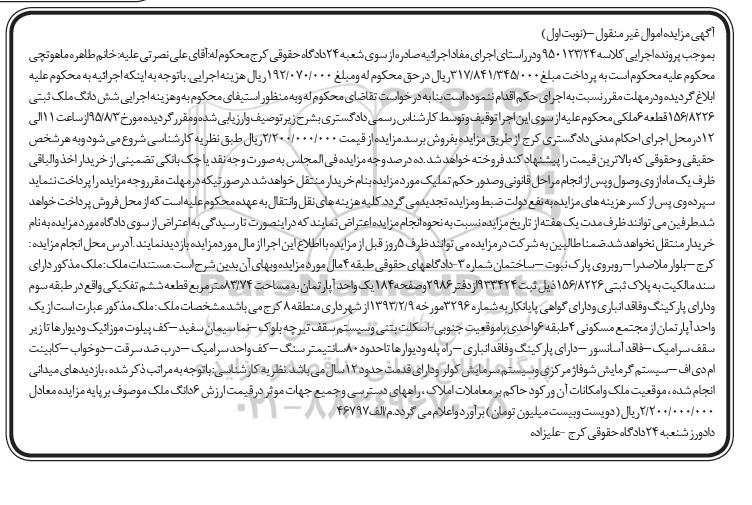 آگهی مزایده اموال غیر منقول –(نوبت اول)
بموجب پرونده اجرایی کلاسه ۹۵۰۱۲۳/۲۴ ودر راستای اجرای مفاد اجرائیه صادره از سوی شعبه ۲۴ دادگاه حقوقی کرج محکوم له:آقای علی نصرتی علیه: خانم طاهره ماهوتچی
محکوم علیه محکوم است به پرداخت مبلغ ۳۱۷/۸۴۱/۳۴۵/۰۰۰ ریال در حق محکوم له ومبلغ ۱۹۲/۰۷۰/۰۰۰ ریال هزینه اجرایی. باتوجه به اینکه اجرائیه به محکوم علیه
ابلاغ گردیده ودر مهلت مقرر نسبت به اجرای حکم اقدام ننموده است.بنابه درخواست تقاضای محکوم له وبه منظور استیفای محکوم به وهزینه اجرایی شش دانگ ملک ثبتی
۱۵۶/۸۲۲۶ قطعه ۶ ملکی محکوم علیه از سوی این اجرا توقیف و توسط کارشناس رسمی دادگستری بشرح زیر توصیف وارزیابی شده و مقرر گردیده مورخ ۹۵/۸/۳ از ساعت ۱۱ الی
۱۲ در محل اجرای احکام مدنی دادگستری کرج از طریق مزایده بفروش برسد.مزایده از قیمت ۲/۲۰۰/۰۰۰/۰۰۰ ریال طبق نظریه کارشناسی شروع می شود و به هر شخص
حقیقی وحقوقی که بالاترین قیمت را پیشنهاد کند فروخته خواهد شد. ده درصد وجه مزایده فی المجلس به صورت وجه نقد یا چک بانکی تضمینی از خریدار اخذ والباقی
ظرف یک ماه از وی وصول و پس از انجام مراحل قانونی وصدور حکم تملیک مورد مزایده بنام خریدار منتقل خواهد شد. در صورتیکه در مهلت مقرر وجه مزایده را پرداخت ننماید
سپرده وی پس از کسر هزینه های مزایده به نفع دولت ضبط ومزایده تجدید می گردد. کلیه هزینه های نقل وانتقال به عهده محکوم علیه است که از محل فروش پرداخت خواهد
شد.طرفین می توانند ظرف مدت یک هفته از تاریخ مزایده نسبت به نحوه انجام مزایده اعتراض نمایند که در اینصورت تا رسیدگی به اعتراض از سوی دادگاه مورد مزایده به نام
خریدار منتقل نخواهد شد.ضمنا طالبین به شرکت در مزایده می توانند ظرف ۵ روز قبل از مزایده با اطلاع این اجرا از مال مورد مزایده بازدید نمایند. آدرس محل انجام مزایده :
کرج –بلوار ملاصدرا – روبروی پارک نبوت –ساختمان شماره ۳- دادگاههای حقوقی طبقه ۴ مال مورد مزایده وبهای آن بدین شرح است. مستندات ملک : ملک مذکور دارای
سند مالکیت به پلاک ثبتی ۱۵۶/۸۲۲۶ ذیل ثبت ۹۳۳۴۲۴ از دفتر ۲۹۸۶ وصفحه ۱۸۴ یک واحد آپارتمان به مساحت ۸۳/۷۴ مترمربع قطعه ششم تفکیکی واقع در طبقه سوم
ودارای پارکینگ وفاقد انباری ودارای گواهی پایانکار به شماره ۳۲۹۶ مورخه ۱۳۹۳/۲/۹ از شهرداری منطقه ۸ کرج می باشد.مشخصات ملک : ملک مذکور عبارت است از یک
واحد آپارتمان از مجتمع مسکونی ۴ طبقه ۶ واحدی باموقعیت جنوبی-اسکلت بتنی وسیستم سقف تیرچه بلوک –نما سیمان سفید –کف پیلوت موزائیک ودیوارها تا زیر
سقف سرامیک –فاقد آسانسور –دارای پارکینگ وفاقد انباری –راه پله ودیوارها تا حدود ۸۰ سانتیمتر سنگ –کف واحد سرامیک –درب ضد سرقت –دوخواب –کابینت
ام دی اف –سیستم گرمایش شوفاژ مرکزی وسیستم سرمایش کولر ودارای قدمت حدود ۱۲ سال می باشد.نظریه کارشناسی :باتوجه به مراتب ذکر شده ، بازدیدهای میدانی
انجام شده ، موقعیت ملک وامکانات آن ورکود حاکم بر معاملات املاک ، راههای دسترسی و جمیع جهات موثر در قیمت ارزش ۶ دانگ ملک موصوف بر پایه مزایده معادل
۲/۲۰۰/۰۰۰/۰۰۰ ریال ( دویست وبیست میلیون تومان ) برآورد واعلام می گردد.م/الف ۴۶۷۹۷
دادورز شعبه ۲۴ دادگاه حقوقی کرج -علیزاده
ParsNamadData
پایگاه اطلاع رسانی
۰۲۱-۸۸۳۴۹۶۷۰-۵